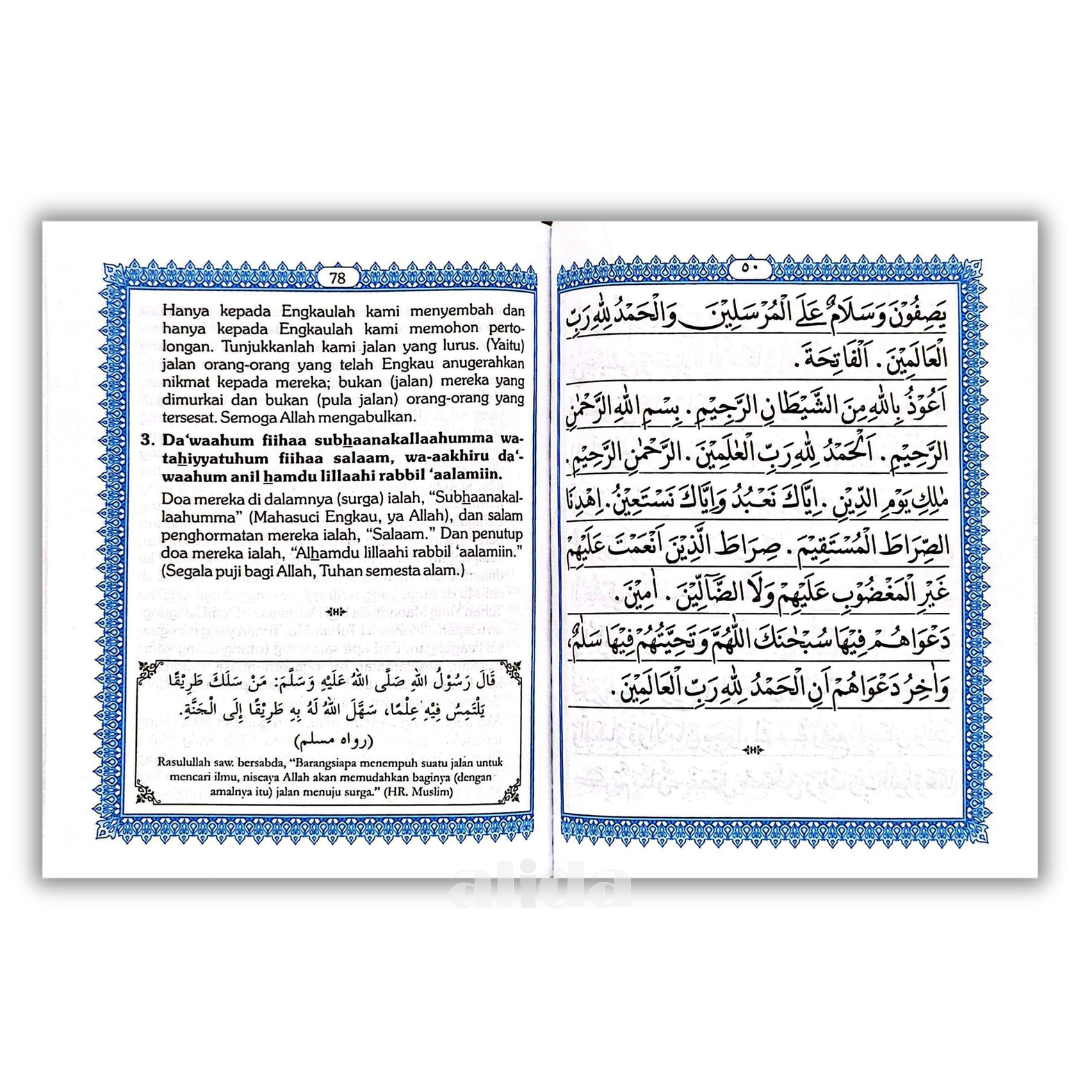 78
Hanya kepada Engkaulah kami menyembah dan
hanya kepada Engkaulah kami memohon perto-
longan. Tunjukkanlah kami jalan yang lurus. (Yaitu)
jalan orang-orang yang telah Engkau anugerahkan
nikmat kepada mereka; bukan (jalan) mereka yang
dimurkai dan bukan (pula jalan) orang-orang yang
tersesat. Semoga Allah mengabulkan.
3. Da‘waahum fiihaa subẖaanakallaahumma wa-
taẖiyyatuhum fiihaa salaam, wa-aakhiru da‘-
waahum anil ẖamdu lillaahi rabbil ‘aalamiin.
Doa mereka di dalamnya (surga) ialah, “Subẖaanakal-
laahumma” (Mahasuci Engkau, ya Allah), dan salam
penghormatan mereka ialah, “Salaam.” Dan penutup
doa mereka ialah, “Alẖamdu lillaahi rabbil ‘aalamiin.”
(Segala puji bagi Allah, Tuhan semesta alam.)
قَالَ رَسُوْلُ اللهِ صَلَّى اللهُ عَلَيْهِ وَسَلَّمَ: مَنْ سَلَكَ طَرِيْقًا
يَلْتَمِسُ فِيْهِ عِلْمًا، سَهَّلَ اللهُ لَهُ بِهِ طَرِيْقًا إِلَى الْجَنَّةِ.
(رواه مسلم)
Rasulullah saw. bersabda, “Barangsiapa menempuh suatu jalan untuk
mencari ilmu, niscaya Allah akan memudahkan baginya (dengan
amalnya itu) jalan menuju surga.” (HR. Muslim)
٥٠
يَصِفُوْنَ وَسَلَامٌ عَلَى الْمُرْسَلِيْنَ وَالْحَمْدُ لِلّٰهِ رَبِّ
الْعَالَمِيْنَ . اَلْفَاتِحَةَ .
اَعُوْذُ بِاللهِ مِنَ الشَّيْطَانِ الرَّجِيْمِ . بِسْمِ اللهِ الرَّحْمٰنِ
الرَّحِيْمِ . اَلْحَمْدُ لِلّٰهِ رَبِّ الْعٰلَمِيْنَ . الرَّحْمٰنِ الرَّحِيْمِ .
مٰلِكِ يَوْمِ الدِّيْنِ . اِيَّاكَ نَعْبُدُ وَاِيَّاكَ نَسْتَعِيْنُ . اِهْدِنَا
الصِّرَاطَ الْمُسْتَقِيْمَ . صِرَاطَ الَّذِيْنَ اَنْعَمْتَ عَلَيْهِمْ
غَيْرِ الْمَغْضُوْبِ عَلَيْهِمْ وَلَا الضَّآلِّيْنَ . اٰمِيْنَ .
دَعْوَاهُمْ فِيْهَا سُبْحٰنَكَ اللّٰهُمَّ وَتَحِيَّتُهُمْ فِيْهَا سَلٰمٌ،
وَاٰخِرُ دَعْوَاهُمْ اَنِ الْحَمْدُ لِلّٰهِ رَبِّ الْعَالَمِيْنَ .
alida